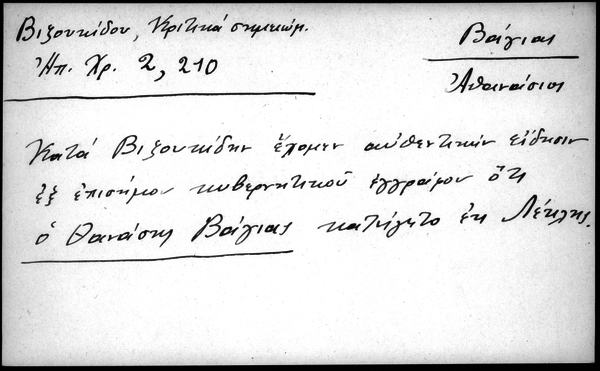 Βιζουκίδου, Κριτικά σημειώμ.
Ἠπ. Χρ. 2, 210
Βάγιας
Ἀθανάσιος
Κατά Βιζουκίδην ἔχομεν αὐθεντικήν εἴδησιν
ἐξ ἐπισήμου κυβερνητικοῦ ἐγγράφου ὅτι
ὁ Θανάσης Βάγιας κατήγετο ἐκ Λέκλης.